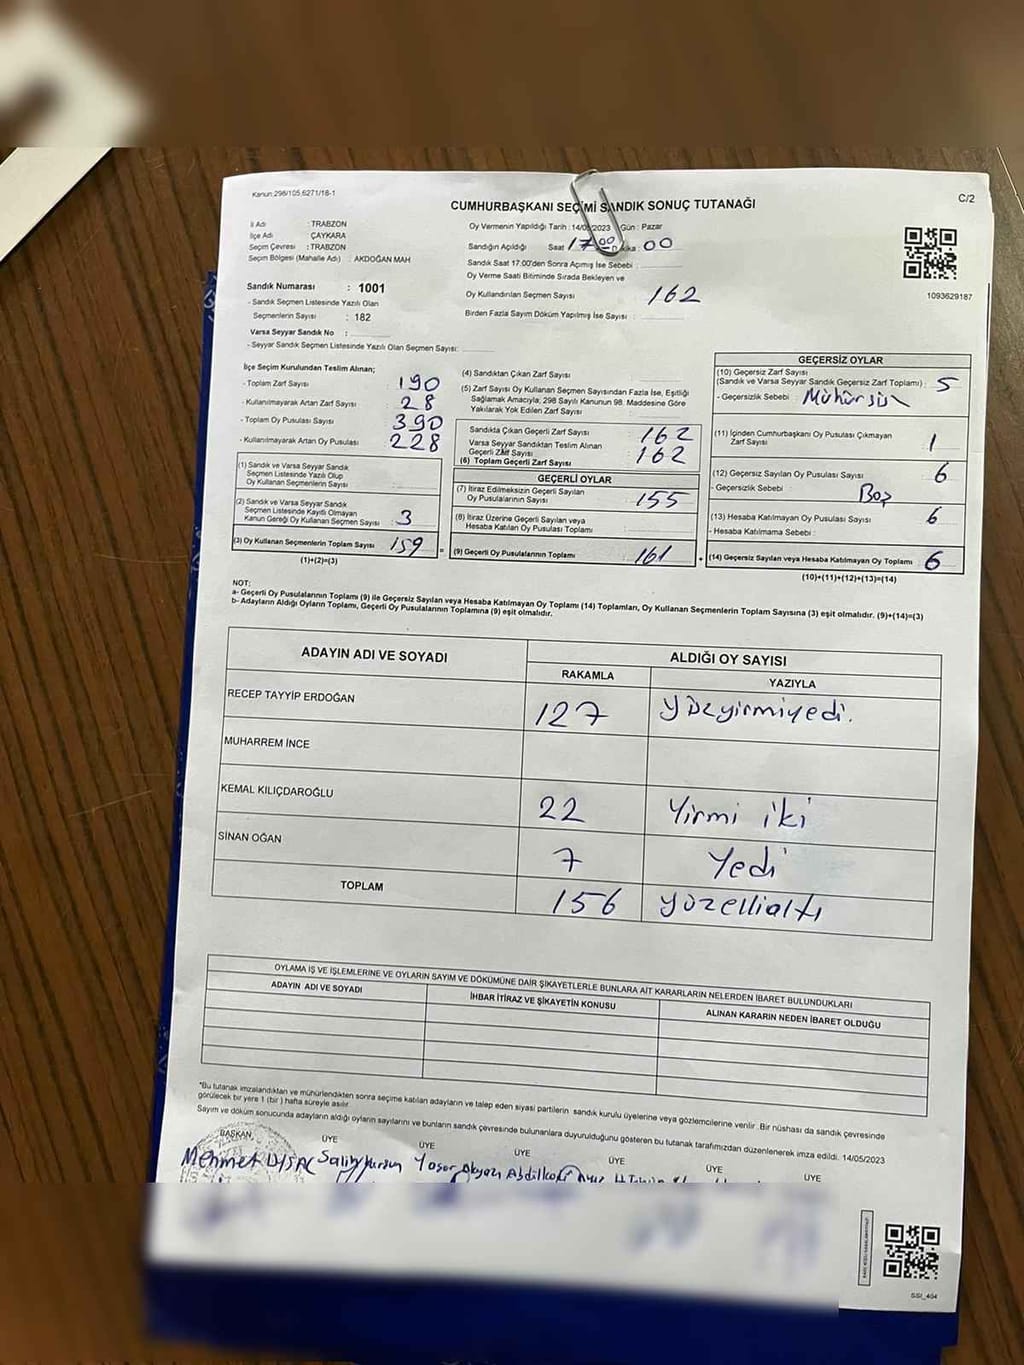 Kanun:298/105,6271/18-1
CUMHURBAŞKANI SEÇİMİ SANDIK SONUÇ TUTANAĞI
C/2
İl Adı : TRABZON
İlçe Adı : ÇAYKARA
Seçim Çevresi : TRABZON
Seçim Bölgesi (Mahalle Adı) : AKDOĞAN MAH
Sandık Numarası : 1001
- Sandık Seçmen Listesinde Yazılı Olan
Seçmenlerin Sayısı : 182
Varsa Seyyar Sandık No :
- Seyyar Sandık Seçmen Listesinde Yazılı Olan Seçmen Sayısı:
Oy Vermenin Yapıldığı Tarih : 14/05/2023 Gün : Pazar
Sandığın Açıldığı Saat 17:00 00
Sandık Saat 17.00'den Sonra Açılmış İse Sebebi :
Oy Verme Saati Bitiminde Sırada Bekleyen ve
Oy Kullandırılan Seçmen Sayısı 162
Birden Fazla Sayım Döküm Yapılmış İse Sayısı :
1093629187
İlçe Seçim Kurulundan Teslim Alınan;
- Toplam Zarf Sayısı : 190
- Kullanılmayarak Artan Zarf Sayısı : 28
- Toplam Oy Pusulası Sayısı : 390
- Kullanılmayarak Artan Oy Pusulası : 228
(1) Sandık ve Varsa Seyyar Sandık
Seçmen Listesinde Yazılı Olup
Oy Kullanan Seçmenlerin Sayısı :
(2) Sandık ve Varsa Seyyar Sandık
Seçmen Listesinde Kayıtlı Olmayan
Kanun Gereği Oy Kullanan Seçmen Sayısı : 3
(3) Oy Kullanan Seçmenlerin Toplam Sayısı : 159
(1)+(2)=(3)
(4) Sandıktan Çıkan Zarf Sayısı :
(5) Zarf Sayısı Oy Kullanan Seçmen Sayısından Fazla İse, Eşitliği
Sağlamak Amacıyla, 298 Sayılı Kanunun 98. Maddesine Göre
Yakılarak Yok Edilen Zarf Sayısı :
Sandıkta Çıkan Geçerli Zarf Sayısı : 162
Varsa Seyyar Sandıktan Teslim Alınan
Geçerli Zarf Sayısı : 162
(6) Toplam Geçerli Zarf Sayısı
GEÇERLİ OYLAR
(7) İtiraz Edilmeksizin Geçerli Sayılan
Oy Pusulalarının Sayısı : 155
(8) İtiraz Üzerine Geçerli Sayılan veya
Hesaba Katılan Oy Pusulası Toplamı :
= (9) Geçerli Oy Pusulalarının Toplamı : 161
GEÇERSİZ OYLAR
(10) Geçersiz Zarf Sayısı
(Sandık ve Varsa Seyyar Sandık Geçersiz Zarf Toplamı) : 5
- Geçersizlik Sebebi : Mühürsün
(11) İçinden Cumhurbaşkanı Oy Pusulası Çıkmayan
Zarf Sayısı : 1
(12) Geçersiz Sayılan Oy Pusulası Sayısı : 6
- Geçersizlik Sebebi : Boş
(13) Hesaba Katılmayan Oy Pusulası Sayısı : 6
- Hesaba Katılmama Sebebi :
+ (14) Geçersiz Sayılan veya Hesaba Katılmayan Oy Toplamı : 6
(10)+(11)+(12)+(13)=(14)
NOT:
a- Geçerli Oy Pusulalarının Toplamı (9) ile Geçersiz Sayılan veya Hesaba Katılmayan Oy Toplamı (14) Toplamları, Oy Kullanan Seçmenlerin Toplam Sayısına (3) eşit olmalıdır. (9)+(14)=(3)
b- Adayların Aldığı Oyların Toplamı, Geçerli Oy Pusulalarının Toplamına (9) eşit olmalıdır.
ADAYIN ADI VE SOYADI
ALDIĞI OY SAYISI
RAKAMLA YAZIYLA
RECEP TAYYİP ERDOĞAN 127 yüzyirmiyedi.
MUHARREM İNCE
KEMAL KILIÇDAROĞLU 22 Yirmi iki
SİNAN OĞAN 7 Yedi
TOPLAM 156 yüzellialtı
OYLAMA İŞ VE İŞLEMLERİNE VE OYLARIN SAYIM VE DÖKÜMÜNE DAİR ŞİKAYETLERLE BUNLARA AİT KARARLARIN NELERDEN İBARET BULUNDUKLARI
ADAYIN ADI VE SOYADI İHBAR İTİRAZ VE ŞİKAYETİN KONUSU ALINAN KARARIN NEDEN İBARET OLDUĞU
*Bu tutanak imzalandıktan ve mühürlendikten sonra seçime katılan adayların ve talep eden siyasi partilerin sandık kurulu üyelerine veya gözlemcilerine verilir. Bir nüshası da sandık çevresinde
görülecek bir yere 1 (bir) hafta süreyle asılır.
Sayım ve döküm sonucunda adayların aldığı oyların sayılarını ve bunların sandık çevresinde bulunanlara duyurulduğunu gösteren bu tutanak tarafımızdan düzenlenerek imza edildi. 14/05/2023
BAŞKAN ÜYE ÜYE ÜYE ÜYE ÜYE ÜYE
Mehmet Salih Yaşar
SSI_404